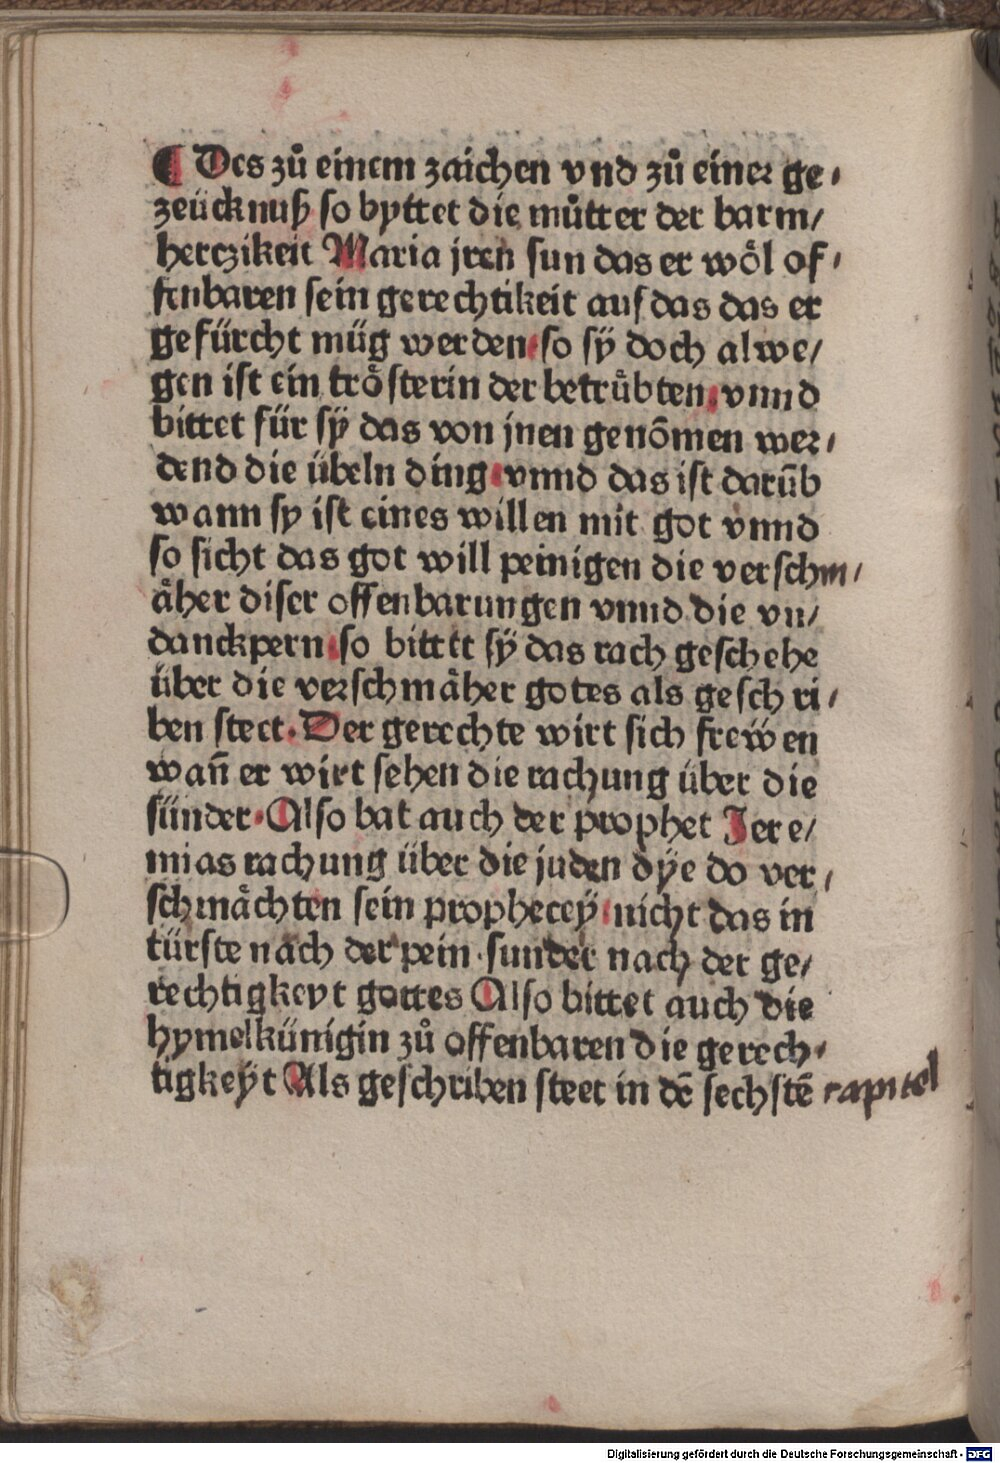 ¶ Des zů einem zaichen vnd zů einer ge⸗
zeücknuß so byttet die můtter der barm/
herczikeit Maria jren sun das er wöl of⸗
fenbaren sein gerechtikeit auf das das er
gefürcht müg werden·so sÿ doch alwe/
gen ist ein trösterin der betrübten·vnnd
bittet für sÿ das von jnen genōmen wer⸗
dend die übeln ding·vnnd das ist darūb
wann sy ist eines willen mit got vnnd
so sicht das got will peinigen die verschm/
äher diser offenbarungen vnnd die vn/
danckpern·so bittet sÿ das rach geschehe
über die verschmäher gotes als geschri⸗
ben steet·Der gerechte wirt sich frewen
wañ er wirt sehen die rachung über die
sünder·Also bat auch der prophet Jere/
mias rachung über die juden dÿe do ver⸗
schmächten sein prophecey·nicht das in
türste nach der pein·sunder nach der ge/
rechtigkeyt gottes Also bittet auch die
hymelkünigin zů offenbaren die gerech⸗
tigkeÿt Als geschriben steet in dē sechstē capitel
Digitalisierung gefördert durch die Deutsche Forschungsgemeinschaft - DFG